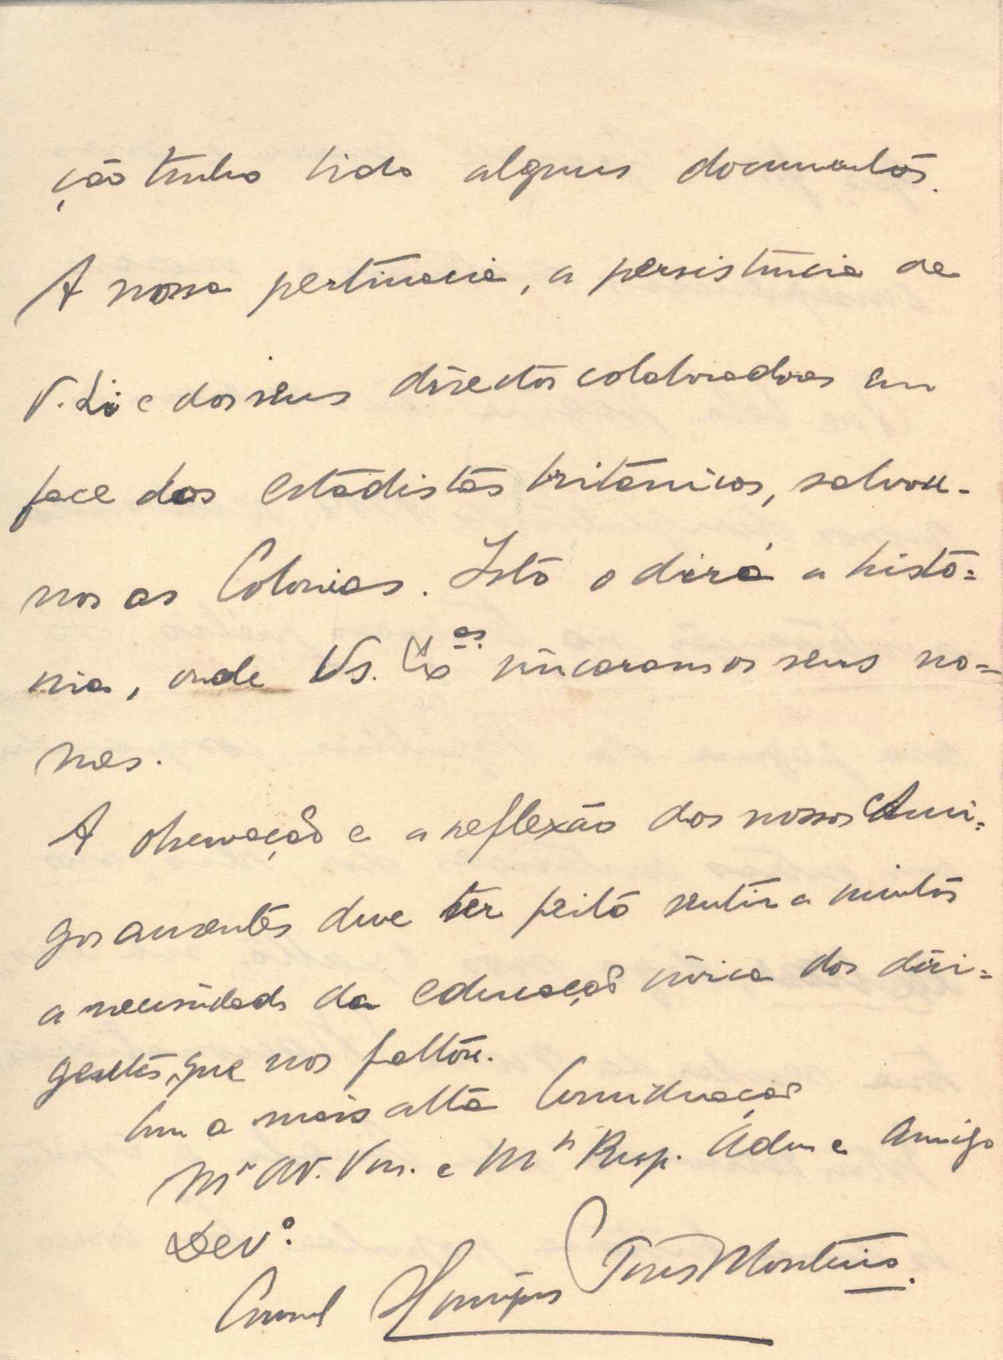 ção tenho lido alguns documentos.
A nossa pertinacia, a persistencia de
V. e dos seus directos colaboradores em
face dos estadistas britanicos, salvou-
nos as Colonias. Isto o dirá a histó=
ria, onde Vs. Exas. vincaram os seus no=
mes.
A observação e a reflexão dos nossos Ami=
gos ausentes deve ter feito sentir a muitos
a necessidade da educação civica dos diri=
gentes, que nos faltou.
Com a mais alta Consideração
Mº At. Ven. e Mº Resp. Adm e Amigo
Devº.
Coronel Henrique Pires Monteiro.